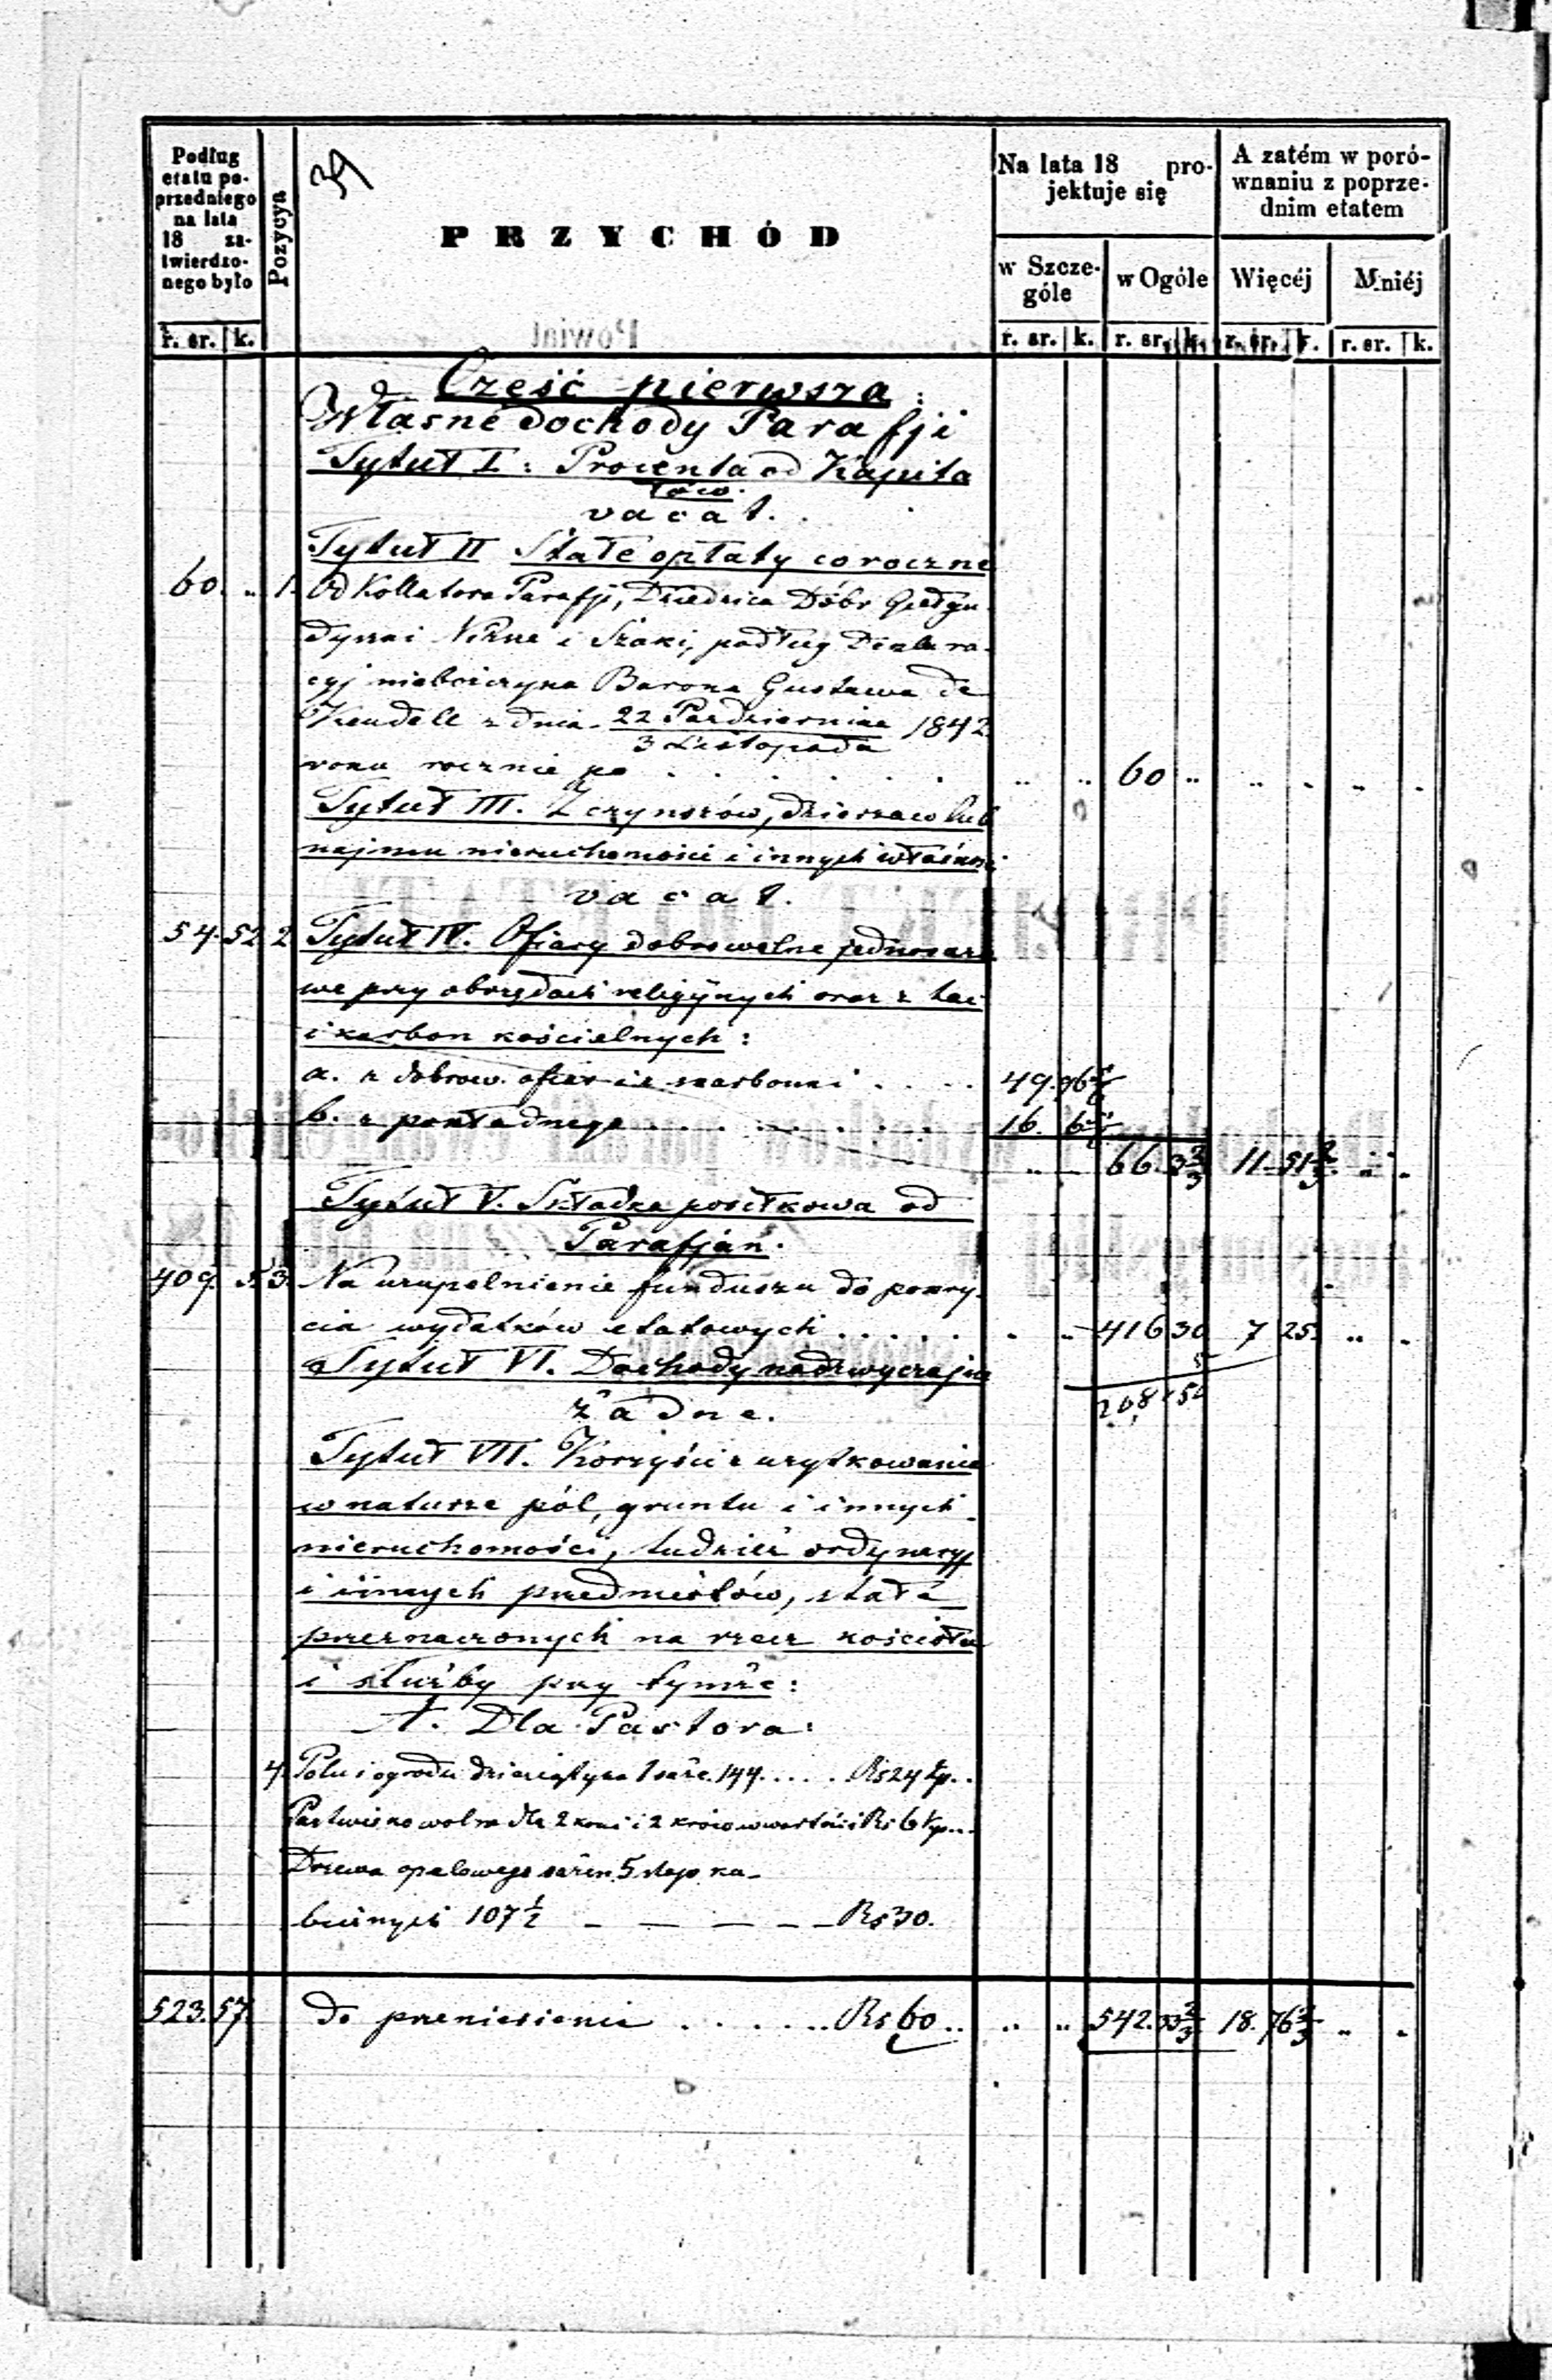 Podług
etatu po-
przedniego
na lata
18 za-
twierdzo-
nego było
r. sr. k.
Pozycya
39
PRZYCHÓD
Na lata 18 pro-
jektuje się
w Szcze-
góle
w Ogóle
r. sr. k. r. sr. k.
A zatém w poró-
wnaniu z poprze-
dnim etatem
Więcéj Mniéj
r. sr. k. r. sr. k.
Część pierwsza:
Własne dochody Parafji
Tytuł I: Procenta od Kapita
łów.
vacat.
Tytuł II Stałe opłaty coroczne
60 .. 1. Od Kollatora Parafji, Dziedzica Dóbr Giełgu-
dyszki Niżne i Szaki, podług Deklara-
cyj nieboszczyka Barona Gustawa de
Keudell z dnia 22 Październia 1842
3 Listopada
roku rocznie po . . . . . . . .. .. 60 .. .. . .. .
Tytuł III. Z czynszów, dzierzaw lub
najmu nieruchomości i innych własnoś
vacat.
54. 52 2 Tytuł IV. Ofiary dobrowolne jednoraz
we przy obrzędach religijnych oraz z tac
i karbon kościelnych:
a. z dobrow. ofiar i z skarbonki . . . . 49. 96 5/6
b. z pokładnego . . . . . . . . 16. 6 5/6
.. — 66. 3 2/3 11 — 51 2/3 .. .
Tytuł V. Składka posiłkowa od
Parafjan.
409. 5. 3. Na uzupełnienie funduszu do pokry-
cia wydatków etatowych . . . . . . .. 416 30 7 25. .. .
Tytuł VI. Dochody nadzwyczajne
208 150
żadne.
Tytuł VII. Korzyści z użytkowania
w naturze pól, gruntu i innych
nieruchomości, tudzież ordynaryj
i innych przedmiotów, stałe
przeznaczonych na rzecz kościoła
i służby przy tymże:
A. Dla Pastora:
4. Polu i ogrodu dziesiątyna 1 saż. 144. . . . . Rs 24 kp. .
Pastwisko wolne dla 2 koni i 2 krów wartości Rs 6 kp. . .
Drzewa opałowego sążen 5 stop ku-
bicznych 107 1/2 — — — — — Rs 30.
523. 57. do przeniesienia . . . . . . Rs 60 .. .. .. 542. 33 2/3 18. 76 2/3 .. .